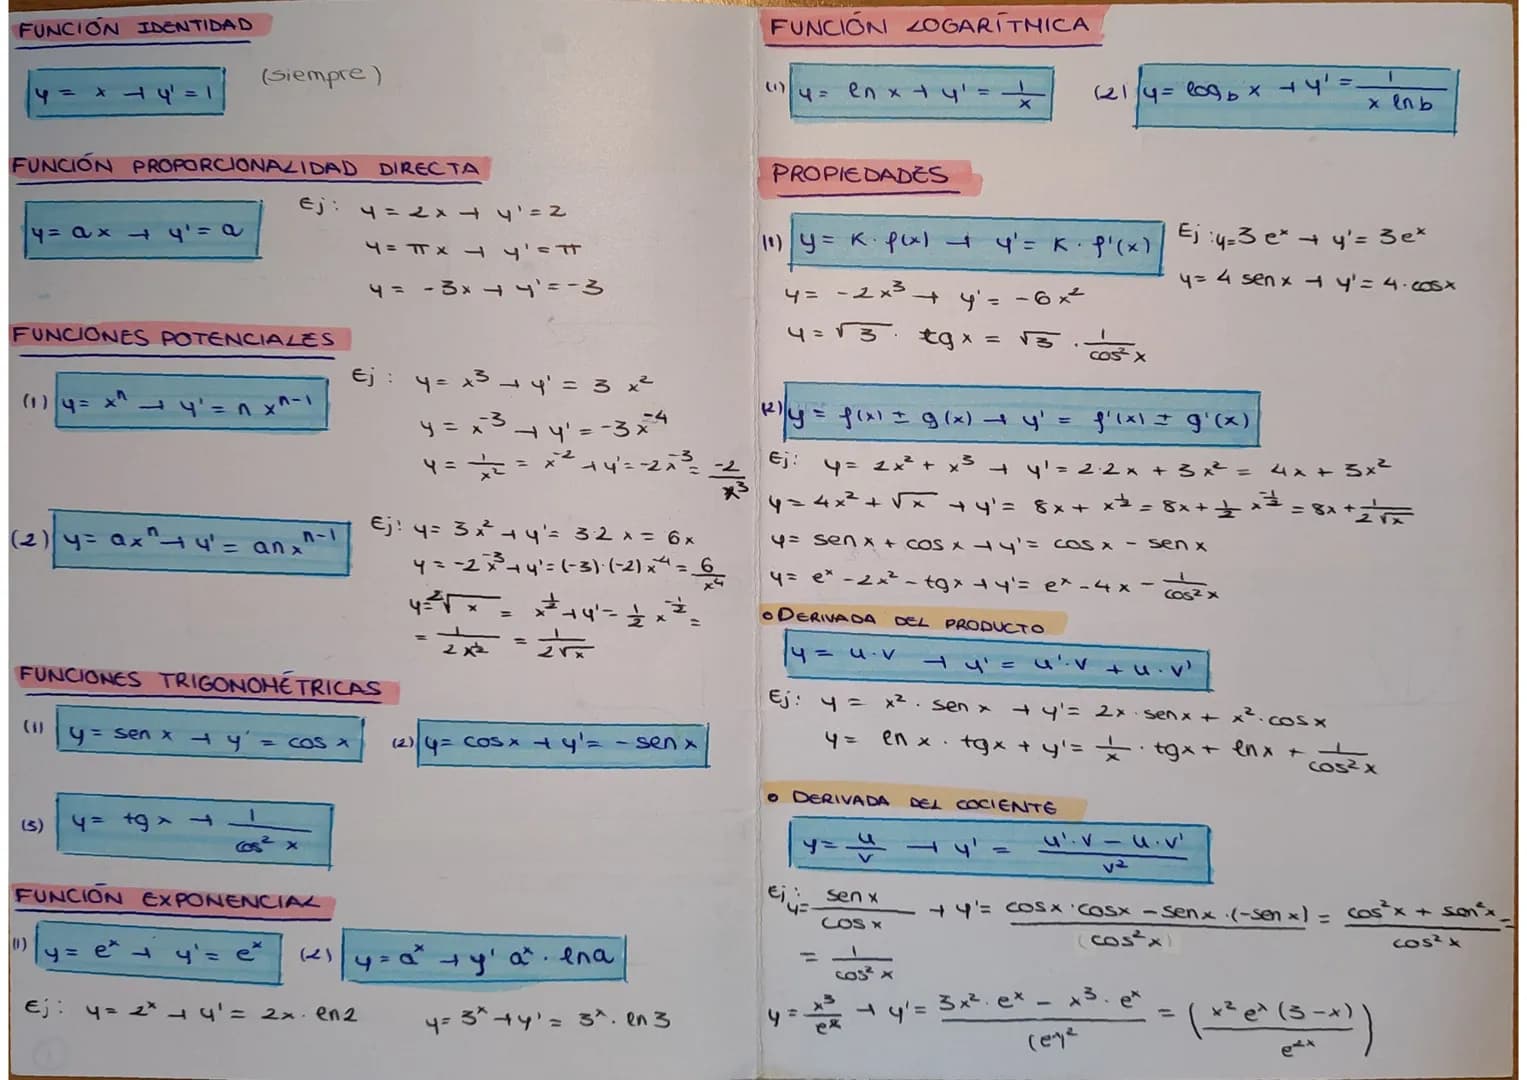 FUNCIÓN IDENTIDAD
y = x → y' = 1 (siempre)
FUNCIÓN PROPORCIONALIDAD DIRECTA
y = ax → y' = a
Ej: y = 2x → y' = 2
y = πx → y' = π
y = -3x → y' = -3
FUNCIONES POTENCIALES
(1) y = xⁿ → y' = n xⁿ⁻¹
Ej: y = x³ → y' = 3x²
y = x⁻³ → y' = -3x⁻⁴
y = 1/x² = x⁻² → y' = -2x⁻³ = -2/x³
(2) y = axⁿ → y' = anxⁿ⁻¹
Ej: y = 3x² → y' = 3·2 x = 6x
y = -2x⁻³ → y' = (-3)·(-2)x⁻⁴ = 6/x⁴
y = ²√x = x^(1/2) → y' = 1/2 x^(-1/2) =
= 1/(2x^(1/2)) = 1/(2√x)
FUNCIONES TRIGONOMÉTRICAS
(1) y = sen x → y' = cos x (2) y = cos x → y' = - sen x
(3) y = tg x → 1/cos² x
FUNCIÓN EXPONENCIAL
(1) y = eˣ → y' = eˣ (2) y = aˣ → y' aˣ · ln a
Ej: y = 2ˣ → y' = 2x · ln 2 y = 3ˣ → y' = 3ˣ · ln 3
FUNCIÓN LOGARÍTMICA
(1) y = ln x → y' = 1/x (2) y = log_b x → y' = 1/(x ln b)
PROPIEDADES
(1) y = K · f(x) → y' = K · f'(x)
Ej: y = 3eˣ → y' = 3eˣ
y = 4 sen x → y' = 4 · cos x
y = -2x³ → y' = -6x²
y = √3 · tg x = √3 · 1/cos² x
(2) y = f(x) ± g(x) → y' = f'(x) ± g'(x)
Ej: y = 2x² + x³ → y' = 2·2x + 3x² = 4x + 3x²
y = 4x² + √x → y' = 8x + x^(1/2) = 8x + 1/2 x^(-1/2) = 8x + 1/(2√x)
y = sen x + cos x → y' = cos x - sen x
y = eˣ - 2x² - tg x → y' = eˣ - 4x - 1/cos² x
• DERIVADA DEL PRODUCTO
y = u·v → y' = u'·v + u·v'
Ej: y = x² · sen x → y' = 2x · sen x + x² · cos x
y = ln x · tg x → y' = 1/x · tg x + ln x + 1/cos² x
• DERIVADA DEL COCIENTE
y = u/v → y' = (u'·v - u·v')/v²
Ej: y = sen x/cos x → y' = (cos x · cos x - sen x · (-sen x))/(cos² x) = (cos² x + sen² x)/cos² x =
= 1/cos² x
y = x³/eˣ → y' = (3x² · eˣ - x³ · eˣ)/(eˣ)² = (x² eˣ (3-x)/e²ˣ)